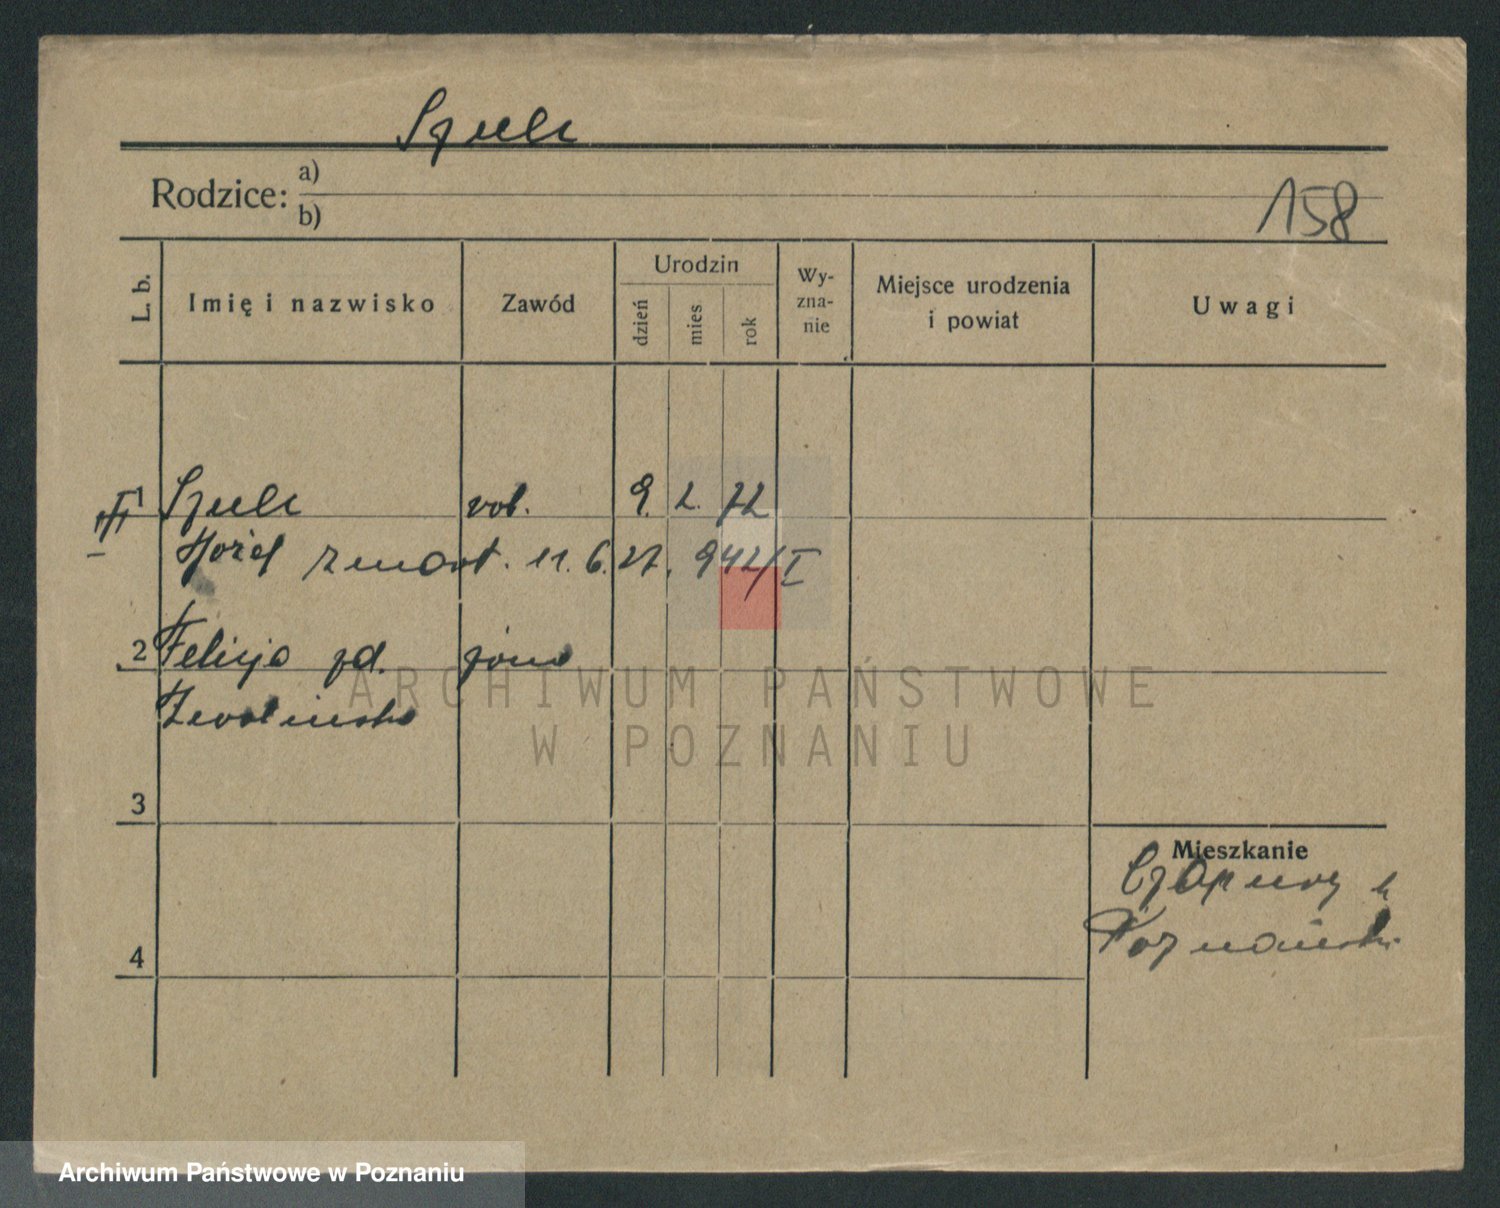 Szulc
Rodzice: a)
b)
158
L. b.
Imię i nazwisko
Zawód
Urodzin
dzień
mies
rok
Wy-
zna-
nie
Miejsce urodzenia
i powiat
Uwagi
1 Szulc rob. 9. 2. 72
Józef zmarł. 11. 6. 27. 942/I
2 Felicja żona
3
4
Mieszkanie
Czapury
ARCHIWUM PAŃSTWOWE
W POZNANIU
Archiwum Państwowe w Poznaniu